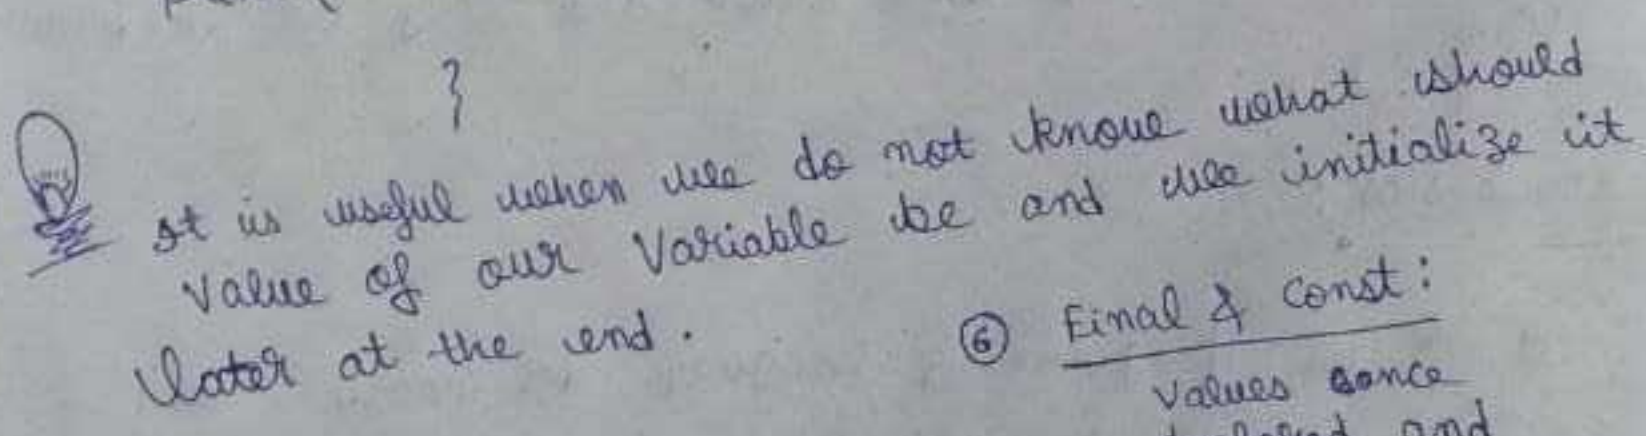 }
It is useful when we do not know what should
value of our variable be and we initialize it
later at the end.
⑥ Final & const:
values once
and